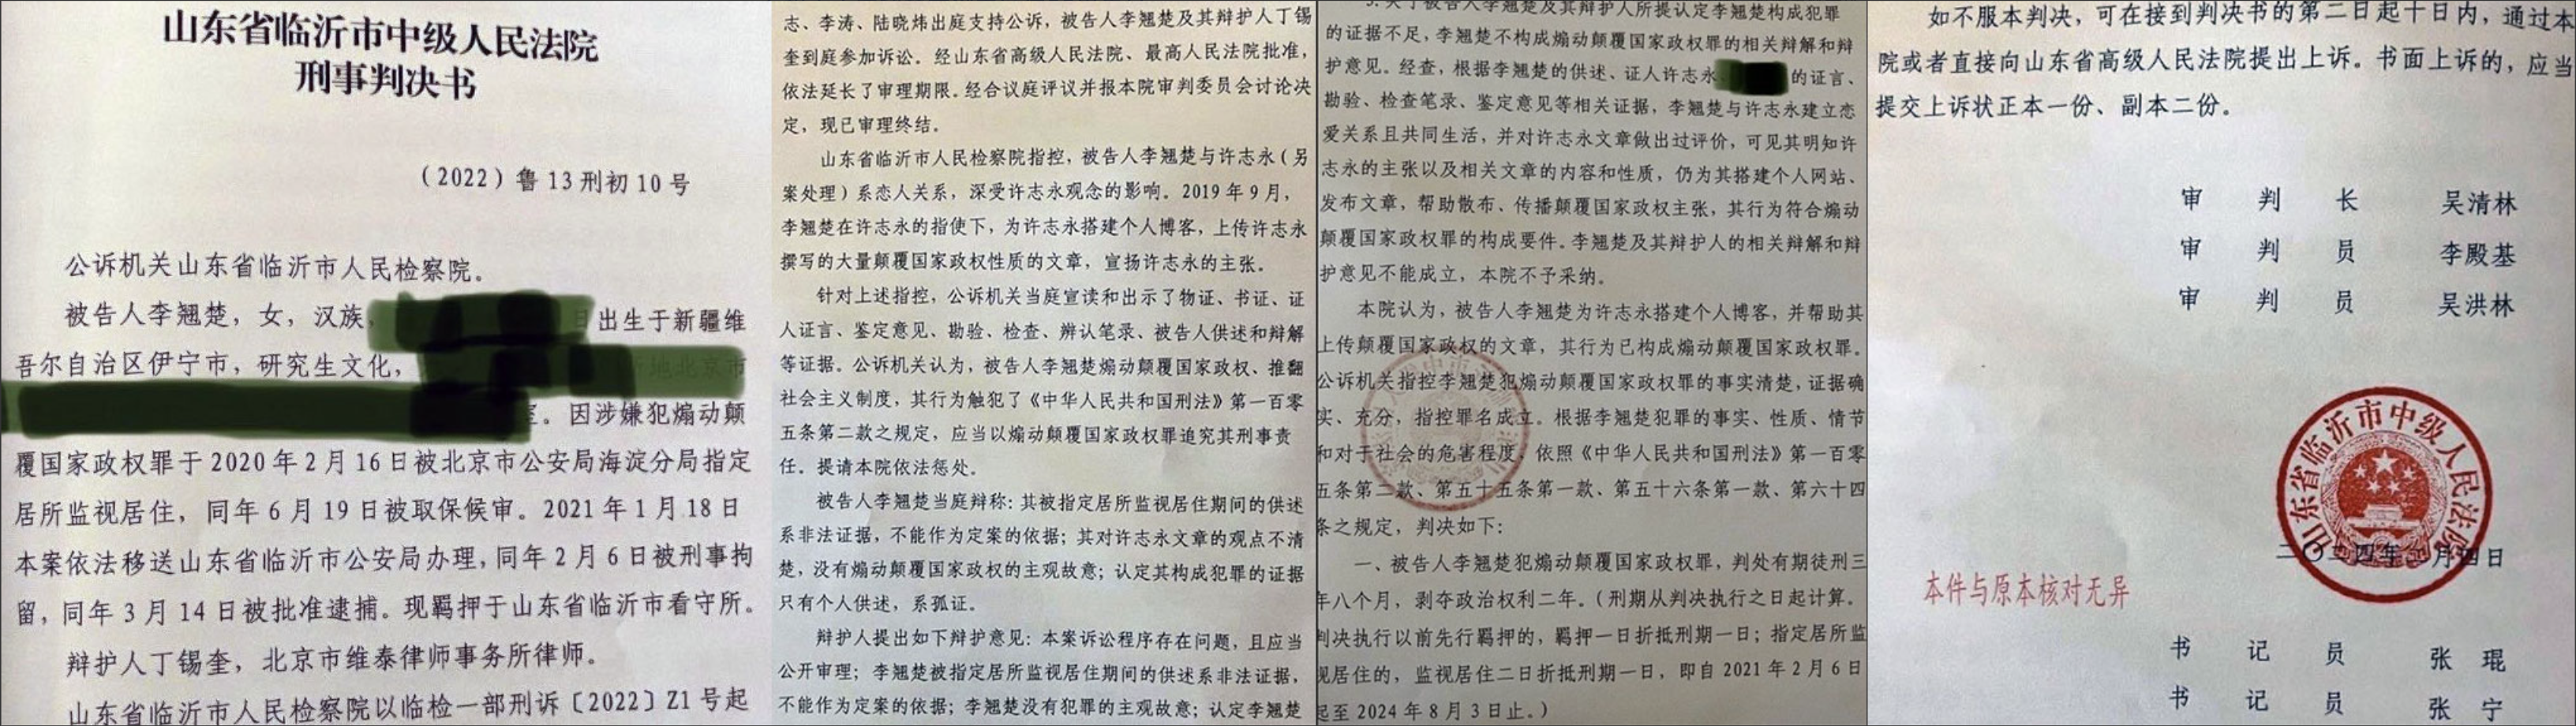 山东省临沂市中级人民法院
刑事判决书
（2022）鲁 13 刑初 10 号
公诉机关山东省临沂市人民检察院。
被告人李翘楚，女，汉族，
日出生于新疆维
吾尔自治区伊宁市，研究生文化，
地北京市
室。因涉嫌犯煽动颠
覆国家政权罪于 2020 年 2 月 16 日被北京市公安局海淀分局指定
居所监视居住，同年 6 月 19 日被取保候审。2021 年 1 月 18 日
本案依法移送山东省临沂市公安局办理，同年 2 月 6 日被刑事拘
留，同年 3 月 14 日被批准逮捕。现羁押于山东省临沂市看守所。
辩护人丁锡奎，北京市维泰律师事务所律师。
山东省临沂市人民检察院以临检一部刑诉〔2022〕Z1 号起
志、李涛、陆晓炜出庭支持公诉，被告人李翘楚及其辩护人丁锡
奎到庭参加诉讼。经山东省高级人民法院、最高人民法院批准，
依法延长了审理期限。经合议庭评议并报本院审判委员会讨论决
定，现已审理终结。
山东省临沂市人民检察院指控，被告人李翘楚与许志永（另
案处理）系恋人关系，深受许志永观念的影响。2019 年 9 月，
李翘楚在许志永的指使下，为许志永搭建个人博客，上传许志永
撰写的大量颠覆国家政权性质的文章，宣扬许志永的主张。
针对上述指控，公诉机关当庭宣读和出示了物证、书证、证
人证言、鉴定意见、勘验、检查、辨认笔录、被告人供述和辩解
等证据。公诉机关认为，被告人李翘楚煽动颠覆国家政权、推翻
社会主义制度，其行为触犯了《中华人民共和国刑法》第一百零
五条第二款之规定，应当以煽动颠覆国家政权罪追究其刑事责
任。提请本院依法惩处。
被告人李翘楚当庭辩称：其被指定居所监视居住期间的供述
系非法证据，不能作为定案的依据；其对许志永文章的观点不清
楚，没有煽动颠覆国家政权的主观故意；认定其构成犯罪的证据
只有个人供述，系孤证。
辩护人提出如下辩护意见：本案诉讼程序存在问题，且应当
公开审理；李翘楚被指定居所监视居住期间的供述系非法证据，
不能作为定案的依据；李翘楚没有犯罪的主观故意；认定李翘楚
3. 关于被告人李翘楚及其辩护人所提认定李翘楚构成犯罪
的证据不足，李翘楚不构成煽动颠覆国家政权罪的相关辩解和辩
护意见。经查，根据李翘楚的供述、证人许志永、的证言、
勘验、检查笔录、鉴定意见等相关证据，李翘楚与许志永建立恋
爱关系且共同生活，并对许志永文章做出过评价，可见其明知许
志永的主张以及相关文章的内容和性质，仍为其搭建个人网站、
发布文章，帮助散布、传播颠覆国家政权主张，其行为符合煽动
颠覆国家政权罪的构成要件。李翘楚及其辩护人的相关辩解和辩
护意见不能成立，本院不予采纳。
本院认为，被告人李翘楚为许志永搭建个人博客，并帮助其
上传颠覆国家政权的文章，其行为已构成煽动颠覆国家政权罪。
公诉机关指控李翘楚犯煽动颠覆国家政权罪的事实清楚，证据确
实、充分，指控罪名成立。根据李翘楚犯罪的事实、性质、情节
和对于社会的危害程度，依照《中华人民共和国刑法》第一百零
五条第二款、第五十五条第一款、第五十六条第一款、第六十四
条之规定，判决如下：
一、被告人李翘楚犯煽动颠覆国家政权罪，判处有期徒刑三
年八个月，剥夺政治权利二年。（刑期从判决执行之日起计算。
判决执行以前先行羁押的，羁押一日折抵刑期一日；指定居所监
视居住的，监视居住二日折抵刑期一日，即自 2021 年 2 月 6 日
起至 2024 年 8 月 3 日止。）
如不服本判决，可在接到判决书的第二日起十日内，通过本
院或者直接向山东省高级人民法院提出上诉。书面上诉的，应当
提交上诉状正本一份、副本二份。
审 判 长 吴清林
审 判 员 李殿基
审 判 员 吴洪林
山东省临沂市中级人民法院
二〇二四年 月四日
本件与原本核对无异
书 记 员 张 琨
书 记 员 张 宁